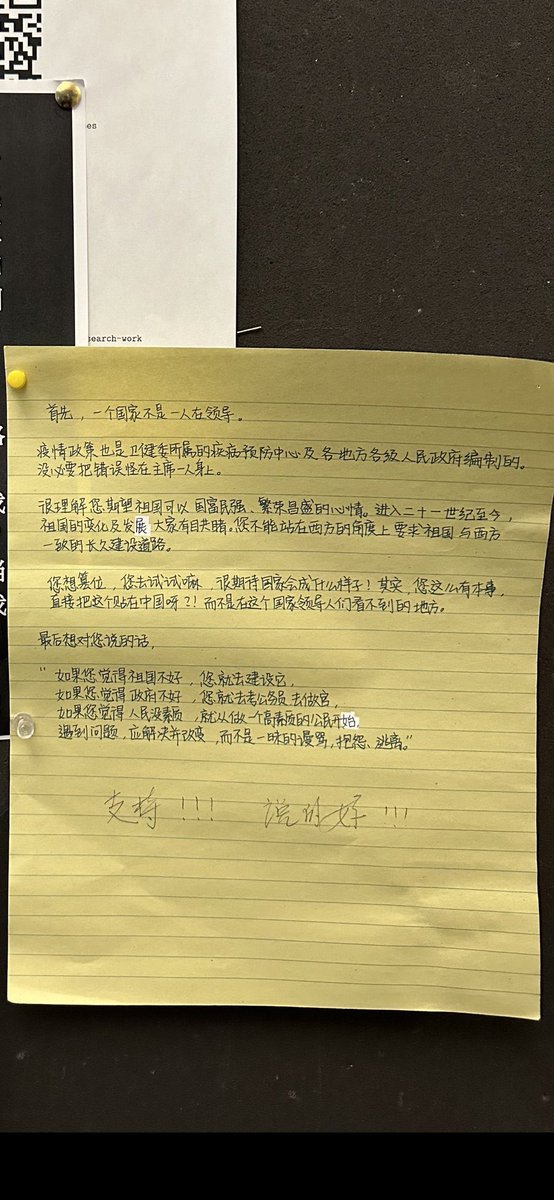 es
search-work
首先，一个国家不是一人在领导。
疫情政策也是卫健委所属的疾病预防中心及各地方各级人民政府编制的。
没必要把错误怪在主席一人身上。
很理解您期望祖国可以国富民强、繁荣昌盛的心情。进入二十一世纪至今，
祖国的变化及发展大家有目共睹。您不能站在西方的角度上要求祖国与西方
一致的长久建设道路。
您想篡位，您去试试嘛，很期待国家会成什么样子！其实，您这么有本事，
直接把这个贴在中国呀？！而不是在这个国家领导人们看不到的地方。
最后想对您说的话，
“如果您觉得祖国不好，您就去建设它，
如果您觉得政府不好，您就去考公务员去做官，
如果您觉得人民没素质，就从做一个高素质的公民开始，
遇到问题，应解决并改变，而不是一味的谩骂，抱怨、逃离。”
支持！！！ 说的好！！！